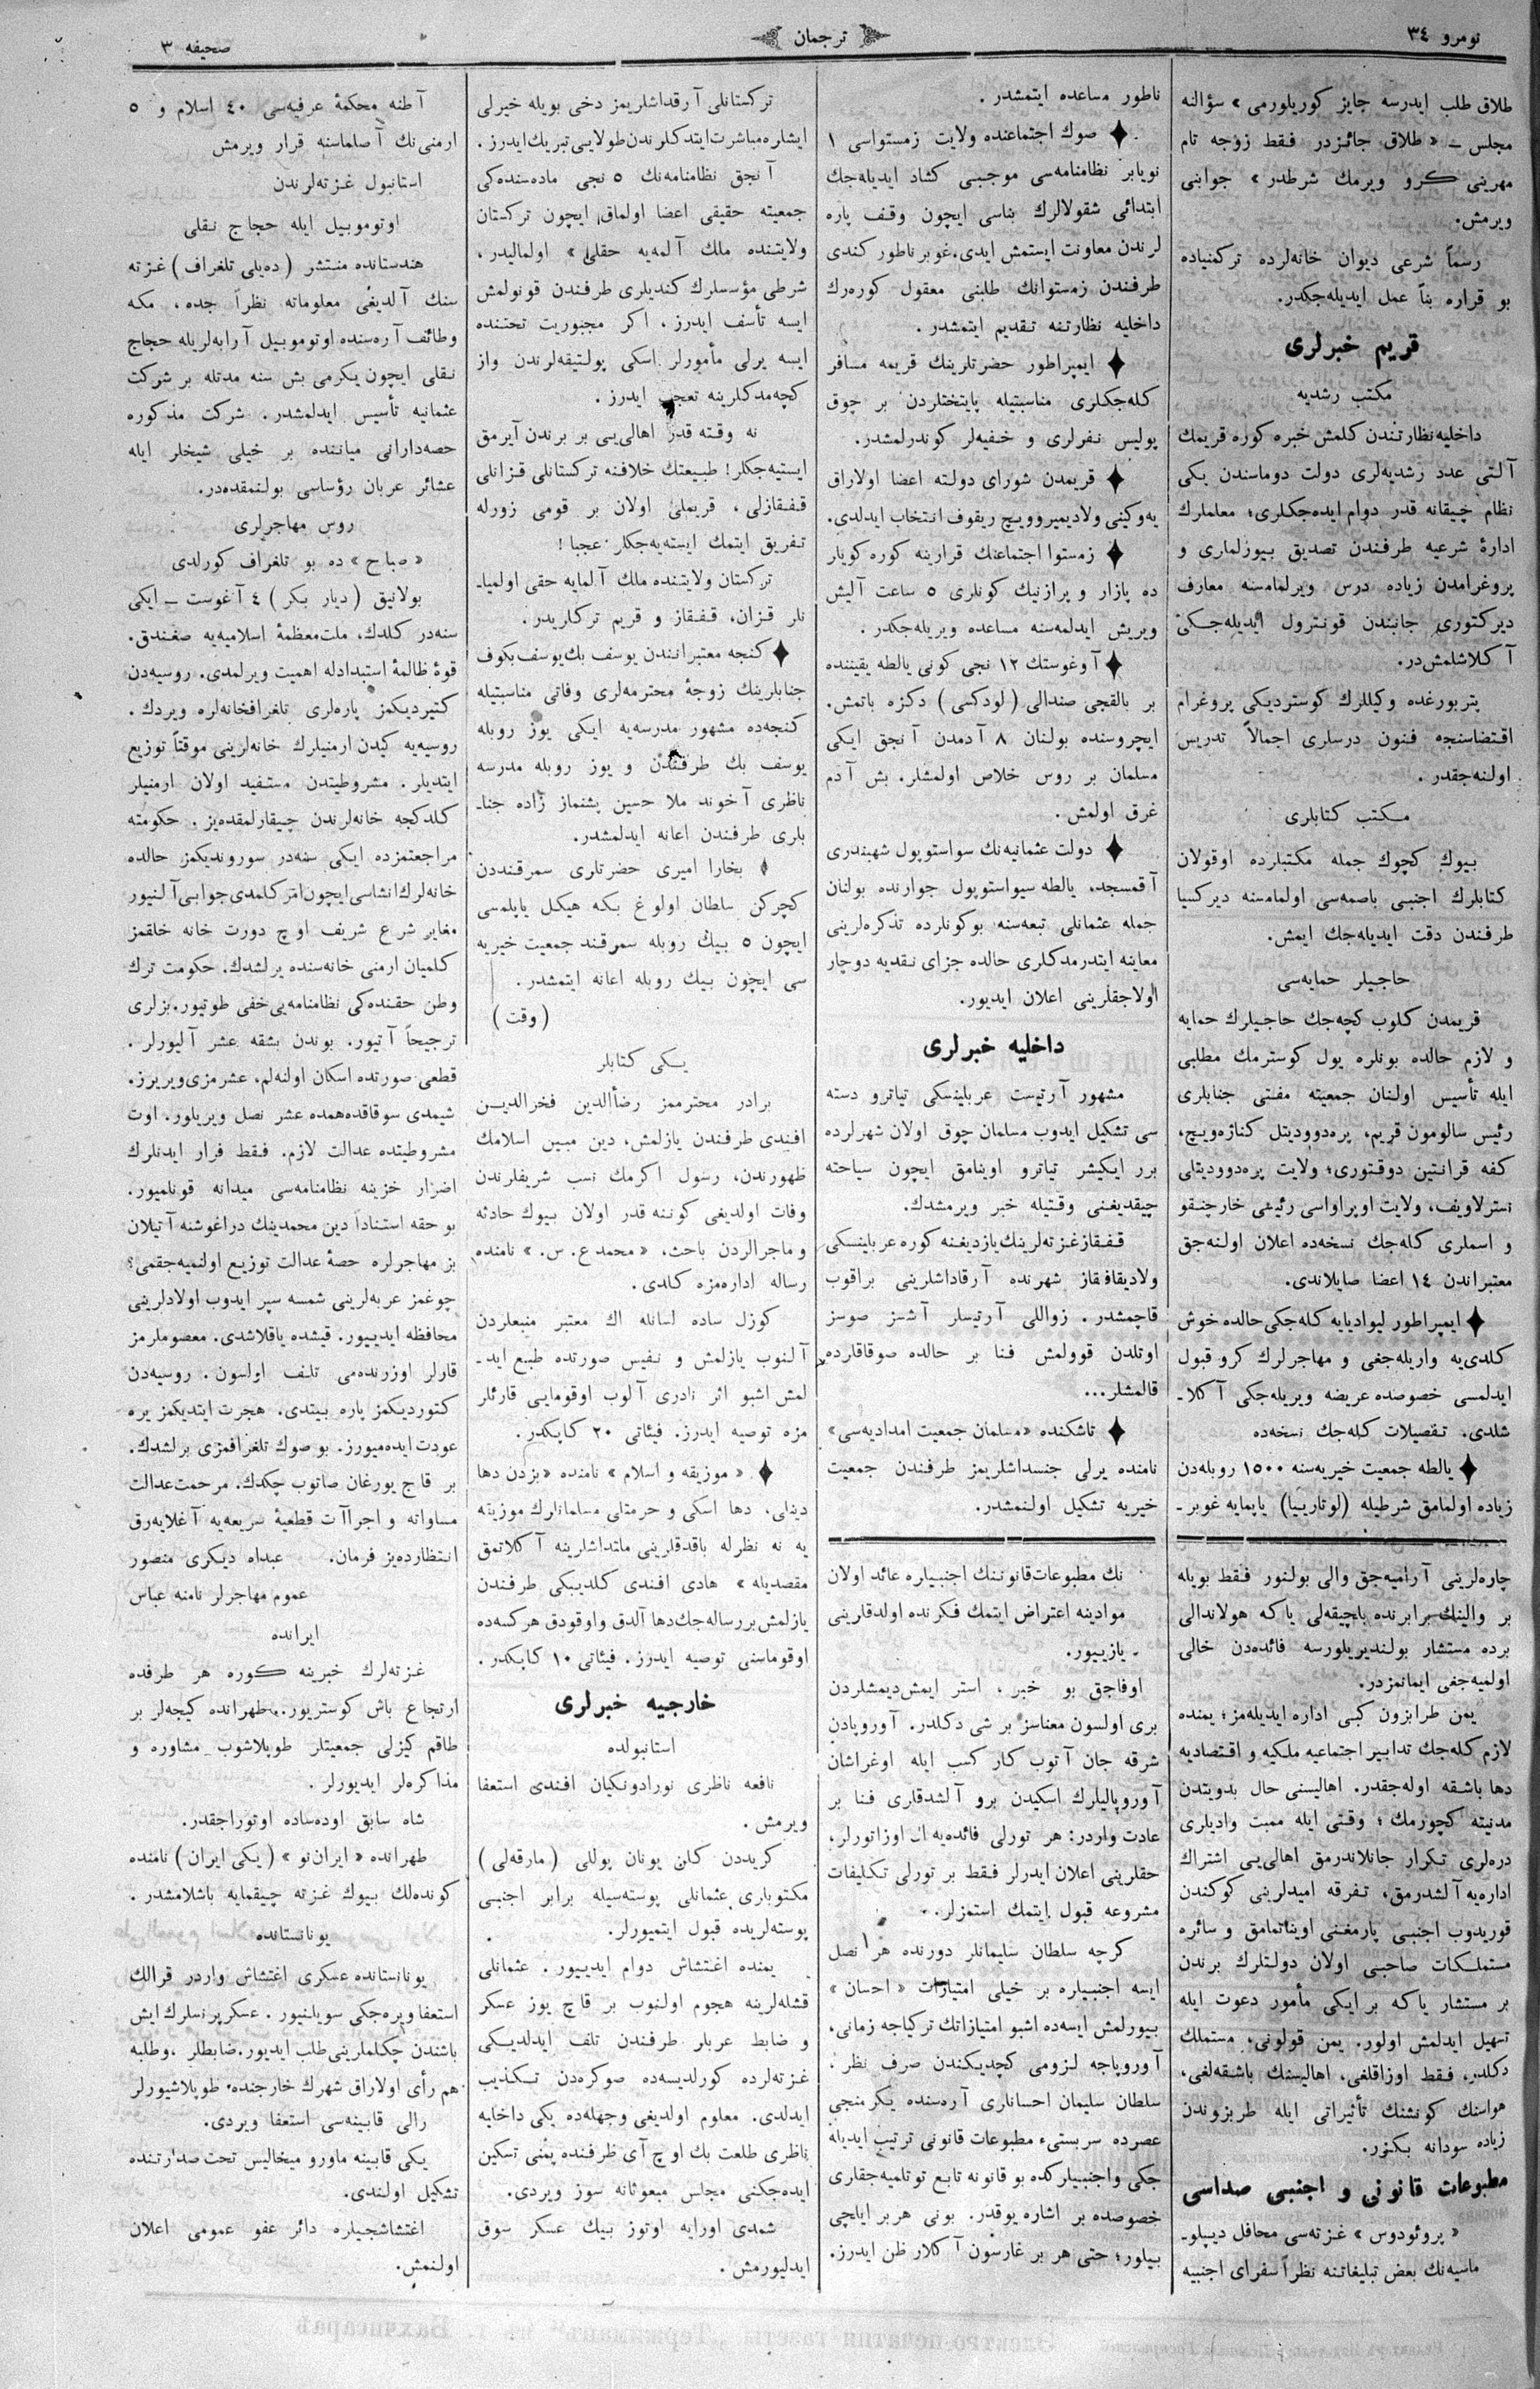 نومرو ٣٤
ترجمان
صحیفه ٣
طلاق طلب ایدرسه جایز کوریلورمی» سؤالنه
مجلس — «طلاق جائزدر فقط زوجه تام
مهرینی کرو ویرمك شرطدر» جوابنی
ویرمش.
رسماً شرعی دیوان خانه‌لرده ترکمنیاده
بو قراره بناً عمل ایدیله‌جکدر.
قریم خبرلری
مکتب رشدیه
داخلیه نظارتندن کلمش خبره کوره قریمك
آلتی عدد رشدیه‌لری دولت دوماسندن یکی
نظام چیقانه قدر دوام ایده‌جکلری؛ معلملرك
ادارهٔ شرعیه طرفندن تصدیق بیوزلماری و
پروغرامدن زیاده درس ویرلمامسنه معارف
دیرکتوری جانبندن قونترول ایدیله‌جکی
آکلاشلمش‌در.
پتربورغده وکیللرك کوستردیکی پروغرام
اقتضاسنجه فنون درسلری اجمالاً تدریس
اولنه‌جقدر.
مکتب کتابلری
بیوك کچوك جمله مکتبلرده اوقولان
کتابلرك اجنبی باصمه‌سی اولمامسنه دیرکسیا
طرفندن دقت ایدیله‌جك ایمش.
حاجیلر حمایه‌سی
قریمدن کلوب کچه‌جك حاجیلرك حمایه
و لازم حالده بونلره یول کوسترمك مطلبی
ایله تأسیس اولنان جمعیته مفتی جنابلری
رئیس سالومون قریم، پره‌دوودیتل کنازه‌ویچ،
کفه قرانتین دوقتوری؛ ولایت پره‌دوودیتلی
نسترلاویف، ولایت اوپراواسی رئیسی خارچنقو
و اسملری کله‌جك نسخه‌ده اعلان اولنه‌جق
معتبراندن ١٤ اعضا صایلاندی.
✦ ایمپراطور لیوادیایه کله‌جکی حالده خوش
کلدی‌یه واریله‌جغی و مهاجرلرك کرو قبول
ایدلمسی خصوصده عریضه ویریله‌جکی آکلا-
شلدی. تفصیلات کله‌جك نسخه‌ده
✦ یالطه جمعیت خیریه‌سنه ١٥٠٠ روبله‌دن
زیاده اولمامق شرطیله (لوتارییا) یاپمایه غوبر-
چاره‌لرینی آرامیه‌جق والی بولنور فقط بویله
بر والینك برابرنده بلچیقه‌لی یاکه هولاندالی
برده مستشار بولندیریلورسه فائده‌دن خالی
اولمیه‌جغی ایمانمزدر.
یمن طرابزون کبی اداره ایدیله‌مز؛ یمنده
لازم کله‌جك تدابیر اجتماعیه ملکیه و اقتصادیه
دها باشقه اوله‌جقدر. اهالیسنی حال بدویتدن
مدنیته کچورمك؛ وقتی ایله ممبت وادیلری
دره‌لری تکرار جانلاندرمق اهالی‌یی اشتراك
اداره‌یه آلشدرمق، تفرقه امیدلرینی کوکندن
قوریدوب اجنبی پارمغنی اویناتمامق و سائره
مستملکات صاحبی اولان دولتلرك برندن
بر مستشار یاکه بر ایکی مأمور دعوت ایله
تسهیل ایدلمش اولور. یمن قولونی، مستملك
دکلدر، فقط اوزاقلغی، اهالیسنك باشقه‌لغی،
هواسنك کونشنك تأثیراتی ایله طربزوندن
زیاده سودانه بکزر.
مطبوعات قانونی و اجنبی صداسی
«پروئودوس» غزته‌سی محافل دیپلو-
ماسیه‌نك بعض تبلیغاتنه نظراً سفرای اجنبیه
ناطور مساعده ایتمشدر.
✦ صوك اجتماعنده ولایت زمستواسی ١
نویابر نظامنامه‌سی موجبی کشاد ایدیله‌جك
ابتدائی شقولالرك بناسی ایچون وقف پاره
لرندن معاونت ایستمش ایدی. غوبرناطور کندی
طرفندن زمستوانك طلبنی معقول کوره‌رك
داخلیه نظارتنه تقدیم ایتمشدر.
✦ ایمپراطور حضرتلرینك قریمه مسافر
کله‌جکلری مناسبتیله پایتختلردن بر چوق
پولیس نفرلری و خفیه‌لر کوندرلمشدر.
✦ قریمدن شورای دولته اعضا اولاراق
یه‌وکینی ولادیمیروویچ ریقوف انتخاب ایدلدی.
✦ زمستوا اجتماعنك قرارینه کوره کویلر
ده پازار و پرازنیك کونلری ٥ ساعت آلیش
ویریش ایدلمه‌سنه مساعده ویریله‌جکدر.
✦ آوغوستك ١٢ نجی کونی یالطه یقیننده
بر بالقجی صندالی (لودکسی) دکزه باتمش.
ایچروسنده بولنان ٨ آدمدن آنجق ایکی
مسلمان بر روس خلاص اولمشلر. بش آدم
غرق اولمش.
✦ دولت عثمانیه‌نك سواستوپول شهبندری
آقمسجد، یالطه سیواستوپول جوارنده بولنان
جمله عثمانلی تبعه‌سنه بوکونلرده تذکره‌لرینی
معاینه ایتدرمدکلری حالده جزای نقدیه دوچار
اولاجقلرینی اعلان ایدیور.
داخلیه خبرلری
مشهور آرتیست عربلینسکی تیاترو دسته
سی تشکیل ایدوب مسلمان چوق اولان شهرلرده
برر ایکیشر تیاترو اوینامق ایچون سیاحته
چیقدیغنی وقتیله خبر ویرمشدك.
قفقاز غزته‌لرینك یازدیغنه کوره عربلینسکی
ولادیقافقاز شهرنده آرقاداشلرینی براقوب
قاچمشدر. زواللی آرتیسلر آشسز صوسز
اوتلدن قوولمش فنا بر حالده صوقاقارده
قالمشلر...
✦ تاشکنده «مسلمان جمعیت امدادیه‌سی»
نامنده یرلی جنسداشلریمز طرفندن جمعیت
خیریه تشکیل اولنمشدر.
نك مطبوعات قانوننك اجنبیاره عائد اولان
موادینه اعتراض ایتمك فکرنده اولدقلرینی
یازییور.
اوفاجق بو خبر، استر ایمش‌دیمشلردن
بری اولسون معناسز بر شی دکلدر. آوروپادن
شرقه جان آتوب کار کسب ایله اوغراشان
آوروپالیلرك اسکیدن برو آلشدقلری فنا بر
عادت واردر: هر تورلی فائده‌یه ال اوزاتورلر،
حقلرینی اعلان ایدرلر فقط بر تورلی تکلیفات
مشروعه قبول ایتمك استمزلر.
کرچه سلطان سلیمانلر دورنده هر نصل
ایسه اجنبیاره بر خیلی امتیازات «احسان»
بیورلمش ایسه‌ده اشبو امتیازاتك ترکیاجه زمانی،
آوروپاجه لزومی کچدیکندن صرف نظر،
سلطان سلیمان احساناری آره‌سنده یکرمنجی
عصرده سربستیء مطبوعات قانونی ترتیب ایدیله
جکی واجنبیارکده بو قانونه تابع توتلمیه‌جقاری
خصوصده بر اشاره یوقدر. بونی هر بر ایلچی
بیلور؛ حتی هر بر غارسون آکلار ظن ایدرز.
ترکستانلی آرقداشلریمز دخی بویله خیرلی
ایشلره مباشرت ایتدکلرندن طولایی تبریك ایدرز.
آنجق نظامنامه‌نك ٥ نجی ماده‌سنده‌کی
جمعیته حقیقی اعضا اولماق ایچون ترکستان
ولایتنده ملك آلمه‌یه حقلی» اولمالیدر،
شرطی مؤسسلرك کندیلری طرفندن قونولمش
ایسه تأسف ایدرز، اکر مجبوریت تحتنده
ایسه یرلی مأمورلر اسکی پولتیقه‌لرندن واز
کچه‌مدکلرینه تعجب ایدرز.
نه وقته قدر اهالی‌یی بر برندن آیرمق
ایستیه‌جکلر! طبیعتك خلافنه ترکستانلی قزانلی
قفقازلی، قریملی اولان بر قومی زورله
تفریق ایتمك ایسته‌یه‌جکلر عجبا!
ترکستان ولایتنده ملك آلمایه حقی اولمیا-
نلر قزان، قفقاز و قریم ترکلریدر.
✦ کنجه معتبرانندن یوسف بك یوسف‌بکوف
جنابلرینك زوجهٔ محترمه‌لری وفاتی مناسبتیله
کنجه‌ده مشهور مدرسه‌یه ایکی یوز روبله
یوسف بك طرفندن و یوز روبله مدرسه
ناظری آخوند ملا حسین پشنماز زاده جنا-
بلری طرفندن اعانه ایدلمشدر.
♦ بخارا امیری حضرتلری سمرقنددن
کچرکن سلطان اولوغ بکه هیکل یاپلمسی
ایچون ٥ بیك روبله سمرقند جمعیت خیریه
سی ایچون بیك روبله اعانه ایتمشدر.
(وقت)
یکی کتابلر
برادر محترممز رضاًالدین فخرالدیـن
افندی طرفندن یازلمش، دین مبین اسلامك
ظهورندن، رسول اکرمك نسب شریفلرندن
وفات اولدیغی کوننه قدر اولان بیوك حادثه
و ماجرالردن باحث، «محمد ع. س.» نامنده
رساله اداره‌مزه کلدی.
کوزل ساده لسانله اك معتبر منبعلردن
آلنوب یازلمش و نفیس صورتده طبع اید-
لمش اشبو اثر نادری آلوب اوقومایی قارئلر
مزه توصیه ایدرز. فیئاتی ٢٠ کاپکدر.
✦ «موزیقه و اسلام» نامنده «بزدن دها
دینلی، دها اسکی و حرمتلی مسلمانلرك موزیقه
یه نه نظرله باقدقلرینی ملتداشلرینه آکلاتمق
مقصدیله» هادی افندی کلدیبکی طرفندن
یازلمش بر رساله‌جك دها آلدق واوقودق هر کسه‌ده
اوقوماسنی توصیه ایدرز. فیئاتی ١٠ کاپکدر.
خارجیه خبرلری
استانبولده
نافعه ناظری نورادونکیان افندی استعفا
ویرمش.
کریددن کلن یونان پوللی (مارقه‌لی)
مکتوباری عثمانلی پوسته‌سیله برابر اجنبی
پوسته‌لریده قبول ایتمیورلر.
یمنده اغتشاش دوام ایدییور. عثمانلی
قشله‌لرینه هجوم اولنوب بر قاچ یوز عسکر
و ضابط عربلر طرفندن تلف ایدلدیکی
غزته‌لرده کورلدیسه‌ده صوکره‌دن تکذیب
ایدلدی. معلوم اولدیغی وجهله‌ده یکی داخلیه
ناظری طلعت بك اوچ آی ظرفنده یمنی تسکین
ایده‌جکنی مجلس مبعوثانه سوز ویردی.
شمدی اورایه اوتوز بیك عسکر سوق
ایدلیورمش.
آطنه محکمهٔ عرفیه‌سی ٤٠ اسلام و ٥
ارمنی‌نك آصلماسنه قرار ویرمش
استانبول غزته‌لرندن
اوتوموبیل ایله حجاج نقلی
هندستانده منتشر (ده‌یلی تلغراف) غزته
سنك آلدیغی معلوماته نظراً جده، مکه
وطائف آره‌سنده اوتوموبیل آرابه‌لریله حجاج
نقلی ایچون یکرمی بش سنه مدتله بر شرکت
عثمانیه تأسیس ایدلمشدر. شرکت مذکوره
حصه‌دارانی میاننده بر خیلی شیخلر ایله
عشائر عربان رؤساسی بولنمقده‌در.
روس مهاجرلری
«صباح» ده بو تلغراف کورلدی
بولانیق (دیار بکر) ٤ آغوست — ایکی
سنه‌در کلدك، ملت‌معظمهٔ اسلامیه‌یه صغندق.
قوهٔ ظالمهٔ استبدادله اهمیت ویرلمدی. روسیه‌دن
کتیردیکمز پاره‌لری تلغرافخانه‌لره ویردك.
روسیه‌یه کیدن ارمنیلرك خانه‌لرینی موقتاً توزیع
ایتدیلر. مشروطیتدن مستفید اولان ارمنیلر
کلدکجه خانه‌لرندن چیقارلمقده‌یز. حکومته
مراجعتمزده ایکی سنه‌در سوروندیکمز حالده
خانه‌لرك انشاسی ایچون امر کلمدی جوابی آلنیور
مغایر شرع شریف اوچ دورت خانه خلقمز
کلمیان ارمنی خانه‌سنده یرلشدك. حکومت ترك
وطن حقنده‌کی نظامنامه‌یی خفی طوتیور. بزلری
ترجیحاً آتیور. بوندن بشقه عشر آلیورلر.
قطعی صورتده اسکان اولنه‌لم، عشرمزی ویریرز.
شیمدی سوقاقده‌همده عشر نصل ویریلور. اوت
مشروطیتده عدالت لازم. فقط فرار ایدنلرك
اضرار خزینه نظامنامه‌سی میدانه قونلمیور.
بو حقه استناداً دین محمدینك دراغوشنه آتیلان
بز مهاجرلره حصهٔ عدالت توزیع اولنمیه‌جقمی؟
چوغمز عربه‌لرینی شمسه سپر ایدوب اولادلرینی
محافظه ایدییور. قیشده یاقلاشدی. معصوملرمز
قارلر اوزرنده‌می تلف اولسون. روسیه‌دن
کتوردیکمز پاره بیتدی. هجرت ایتدیکمز یره
عودت ایده‌میورز. بو صوك تلغرافمزی برلشدك.
بر قاج یورغان صاتوب چکدك. مرحمت‌عدالت
مساواته و اجراآت قطعیهٔ سریعه‌یه آغلایه‌رق
انتظارده‌یز فرمان. عبداه دیکری منصور
عموم مهاجرلر نامنه عباس
ایرانده
غزته‌لرك خبرینه کوره هر طرفده
ارتجاع باش کوستریور... طهرانده کیجه‌لر بر
طاقم کیزلی جمعیتلر طوپلاشوب مشاوره و
مذاکره‌لر ایدیورلر.
شاه سابق اوده‌ساده اوتوراجقدر.
طهرانده «ایران‌نو» (یکی ایران) نامنده
کونده‌لك بیوك غزته چیقمایه باشلامشدر.
یونانستانده
یونانستانده عسکری اغتشاش واردر قرالك
استعفا ویره‌جکی سویلنیور. عسکر پرنسلرك ایش
باشندن چکلملرینی طلب ایدیور. ضابطلر، وطلبه
هم رأی اولاراق شهرك خارجنده طوپلاشیورلر
رالی قابینه‌سی استعفا ویردی.
یکی قابینه ماورو میخالیس تحت صدارتنده
تشکیل اولندی.
اغتشاشجیلره دائر عفو عمومی اعلان
اولنمش.